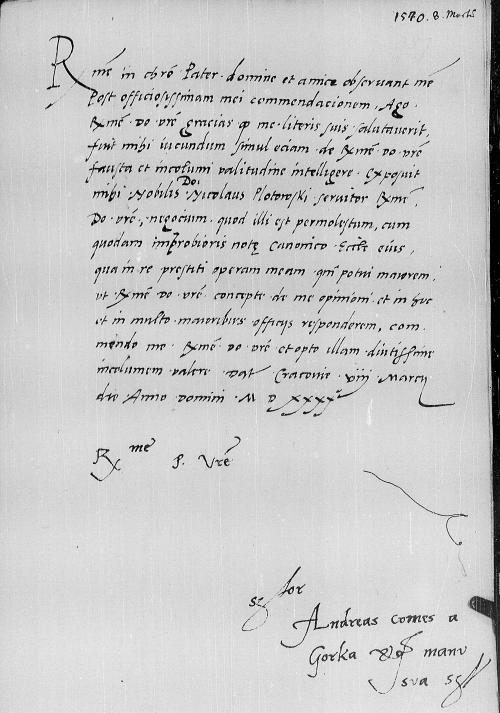 1540. 8. Martii
Rme in chro Pater domine et amice observantme
Post officiosissimam mei commendacionem, Ago
Rme do vre gracias q me literis suis salutaverit,
fuit mihi iucundum simul eciam de Rme do vre
fausta et incolumi valitudine intelligere. Exposuit
mihi Nobilis Doi Nicolaus Plotowski servitor Rme
Do vre, negocium quod illi est permolestum, cum
quodam improbioris notę Canonico Eccle eius,
qua in re prestiti operam meam qm potui maiorem,
ut Rme do vre concepte de me opinioni et in hac
et in multo maioribus officijs responderem, com
mendo me Rme do vre et opto illam diutissime
incolumem valere Dat Cracovie viij Marcij
die Anno domini M D XXXX
Rme P. Vre
Andreas comes a
Gorka manu
sua